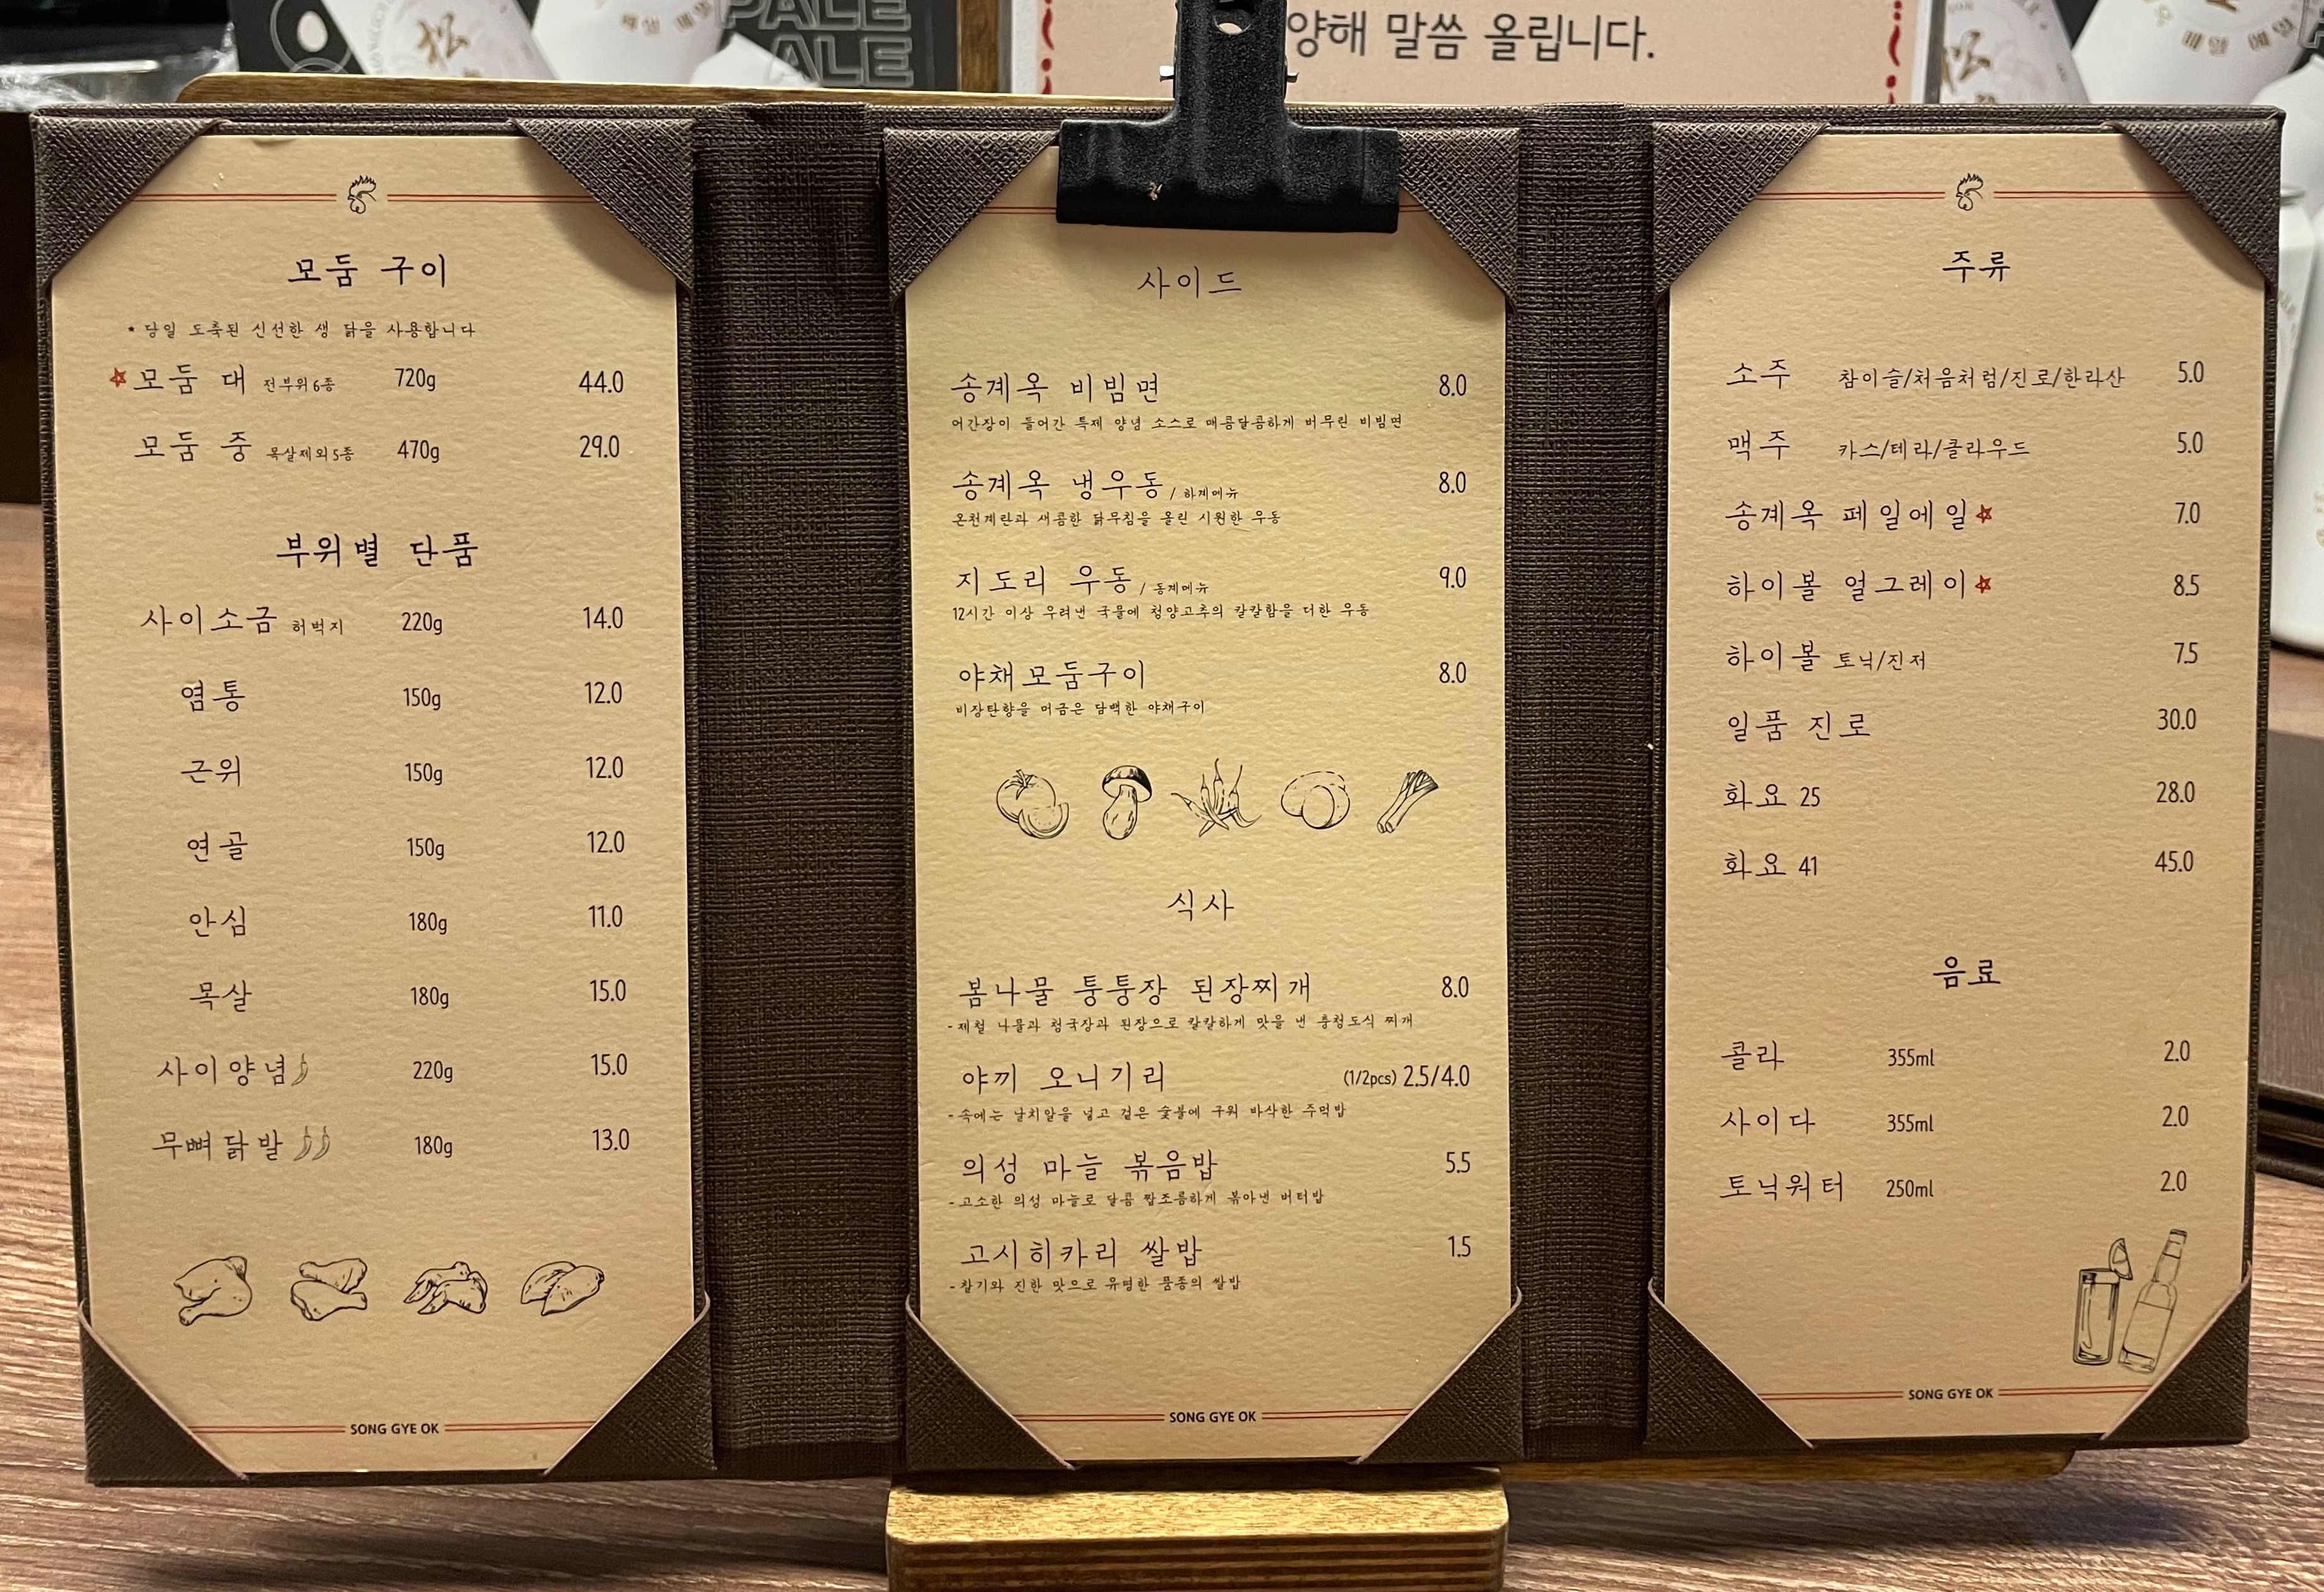 PALE
ALE
양해 말씀 올립니다.
모둠 구이
* 당일 도축된 신선한 생 닭을 사용합니다
모둠 대 전부위 6종 720g 44.0
모둠 중 목살제외 5종 470g 29.0
부위별 단품
사이소금 허벅지 220g 14.0
염통 150g 12.0
근위 150g 12.0
연골 150g 12.0
안심 180g 11.0
목살 180g 15.0
사이양념 220g 15.0
무뼈닭발 180g 13.0
SONG GYE OK
사이드
송계옥 비빔면 8.0
어간장이 들어간 특제 양념 소스로 매콤달콤하게 버무린 비빔면
송계옥 냉우동 / 하계메뉴 8.0
온천계란과 새콤한 닭무침을 올린 시원한 우동
지도리 우동 / 동계메뉴 9.0
12시간 이상 우려낸 국물에 청양고추의 칼칼함을 더한 우동
야채모둠구이 8.0
비장탄향을 머금은 담백한 야채구이
식사
봄나물 퉁퉁장 된장찌개 8.0
- 제철 나물과 청국장과 된장으로 칼칼하게 맛을 낸 충청도식 찌개
야끼 오니기리 (1/2pcs) 2.5/4.0
- 속에는 날치알을 넣고 겉은 숯불에 구워 바삭한 주먹밥
의성 마늘 볶음밥 5.5
- 고소한 의성 마늘로 달콤 짭조름하게 볶아낸 버터밥
고시히카리 쌀밥 1.5
- 찰기와 진한 맛으로 유명한 품종의 쌀밥
SONG GYE OK
주류
소주 참이슬/처음처럼/진로/한라산 5.0
맥주 카스/테라/클라우드 5.0
송계옥 페일에일 7.0
하이볼 얼그레이 8.5
하이볼 토닉/진저 7.5
일품 진로 30.0
화요 25 28.0
화요 41 45.0
음료
콜라 355ml 2.0
사이다 355ml 2.0
토닉워터 250ml 2.0
SONG GYE OK